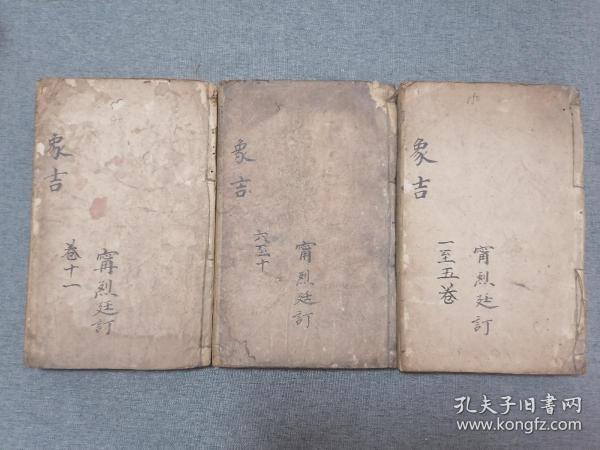 象吉
一至五卷
甯烈廷訂
象吉
六至十
甯烈廷訂
象吉
卷十一
甯烈廷訂
孔夫子旧书网
www.kongfz.com